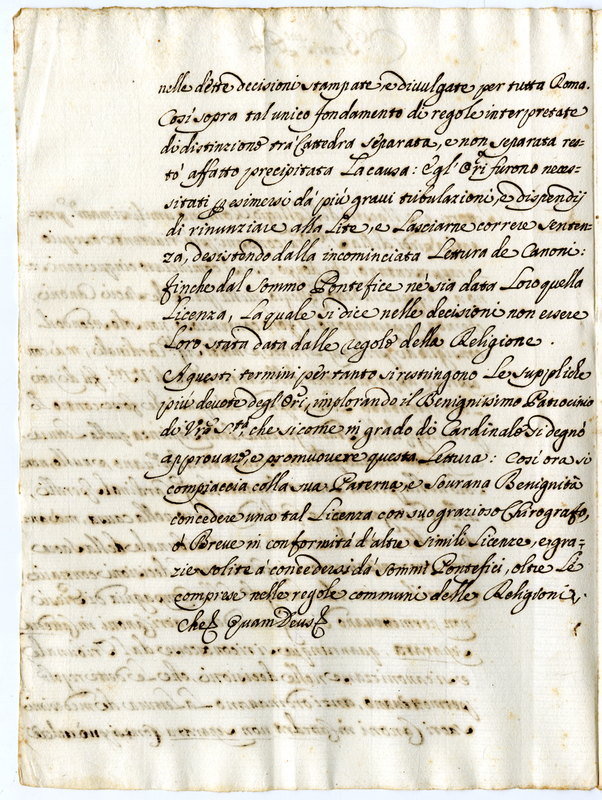 nelle dette decisioni stampate, e divulgate per tutta Roma.
Così sopra tal unico fondamento di regole interpretate
di distinzione trà Cattedra separata, e non separata res-
tò affatto precipitata La causa: e gl' Orĩ furono neces-
sitati p esimersi dà più gravi tribulazioni, e dispendij
di rinunziare alla Lite, e Lasciarne correre senten-
za, desistendo dalla incominciata Lettura de Canoni:
finche dal Sommo Pontefice nè sia data Loro quella
Licenza, La quale si dice nelle decisioni non essere
Loro stata data dalle regole della Religione.
A questi termini per tanto si restringono Le suppliche
più devote degl' Orĩ, implorando il Benignissimo Patrocinio
di Vrã Stà, che si come in grado di Cardinale si degnò
approvare, e promuovere questa Lettura: Così ora si
compiaccia colla sua Paterna, e Sovrana Benignità
concedere una tal Licenza con suo grazioso Chirografo,
ò Breve in conformità d'altre simili Licenze, e gra-
zie solite à concedersi dà Sommi Pontefici, oltre Le
comprese nelle regole communi delle Religioni.
Che Quam Deus